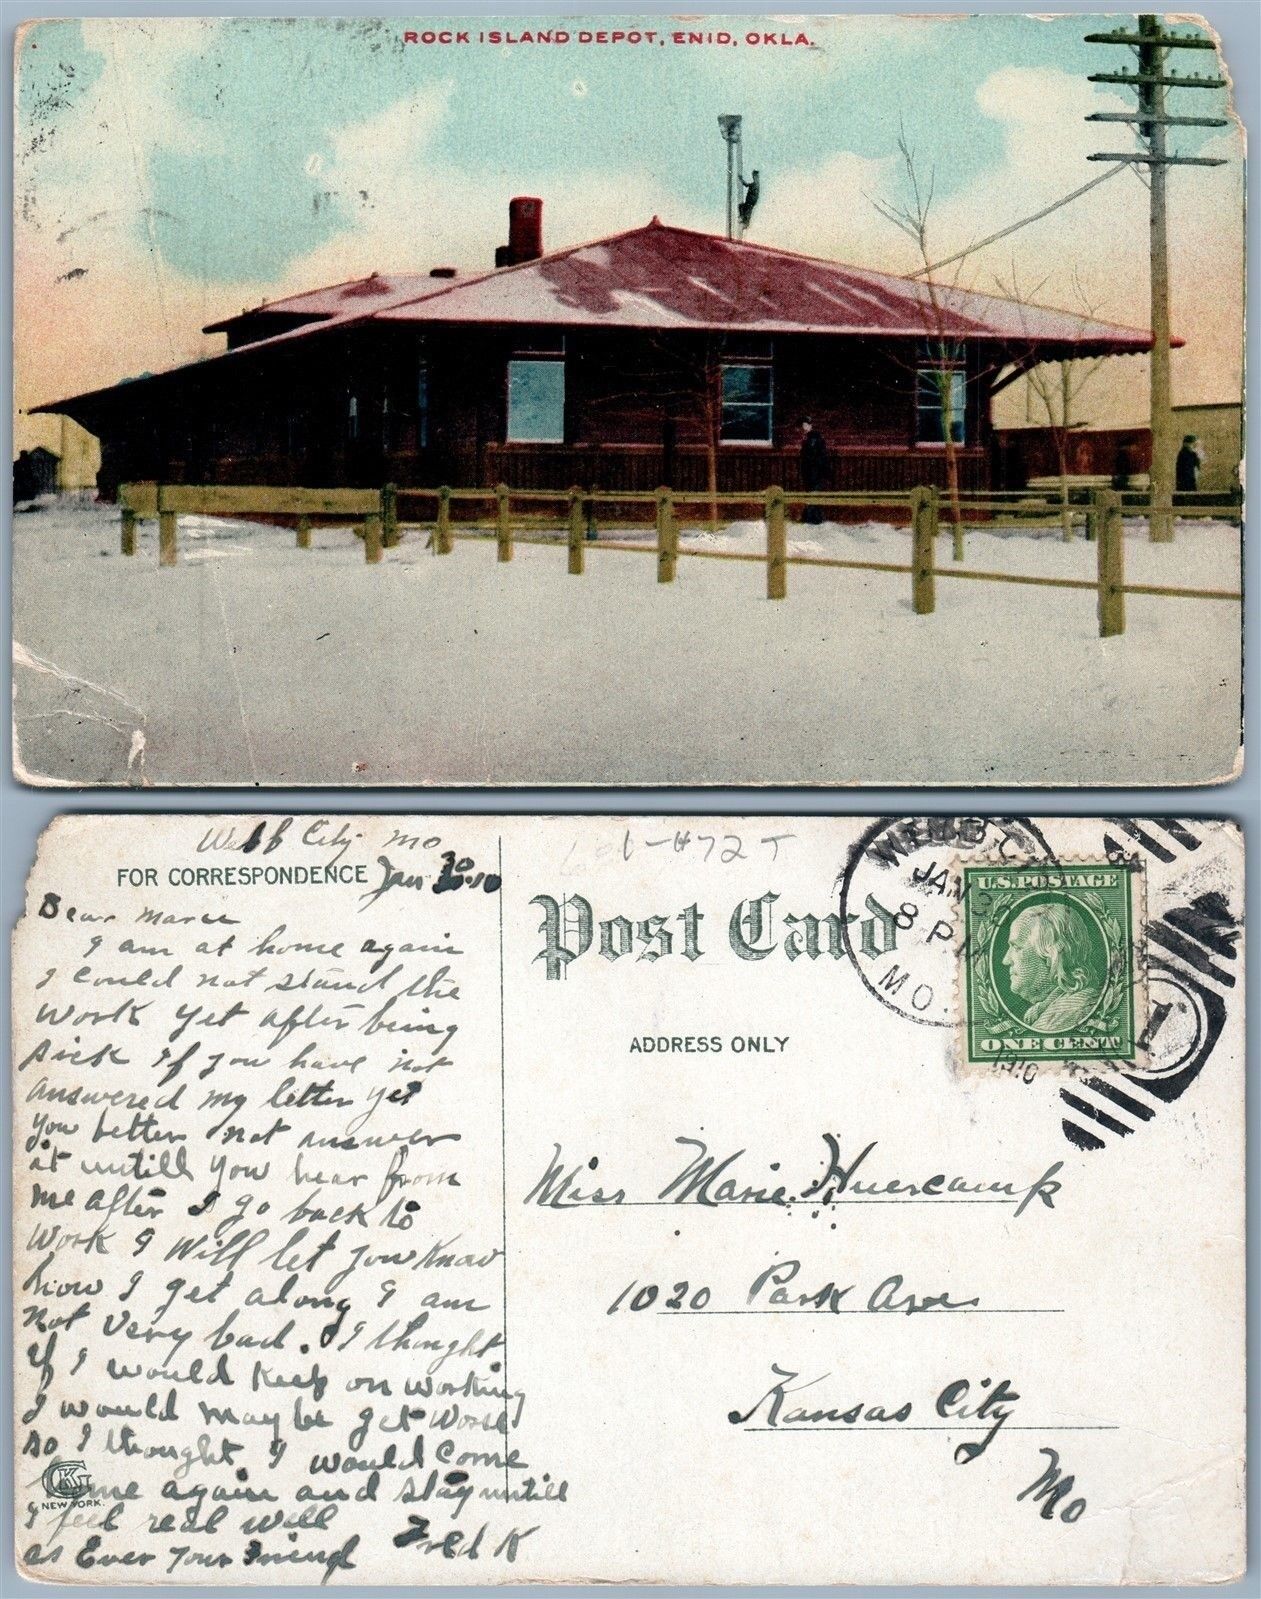 ROCK ISLAND DEPOT, ENID, OKLA.
Webb City Mo
FOR CORRESPONDENCE
Jan 30-10
Dear Marie
I am at home again
I could not stand the
work yet after being
sick If you have not
answered my letter yet
you better not answer
it untill you hear from
me after I go back to
work I will let you know
how I get along I am
not very bad. I thought
If I would keep on working
I would may be get worse
so I thought I would come
home again and stay untill
I feel real well
as Ever your Friend Fred K
CK
NEW YORK.
1-472 T
Post Card
ADDRESS ONLY
WEBB C
JAN 3
8 PM
MO.
1910
U.S. POSTAGE
ONE CENT
1
Miss Marie Huercamp
1020 Park Ave
Kansas City
Mo